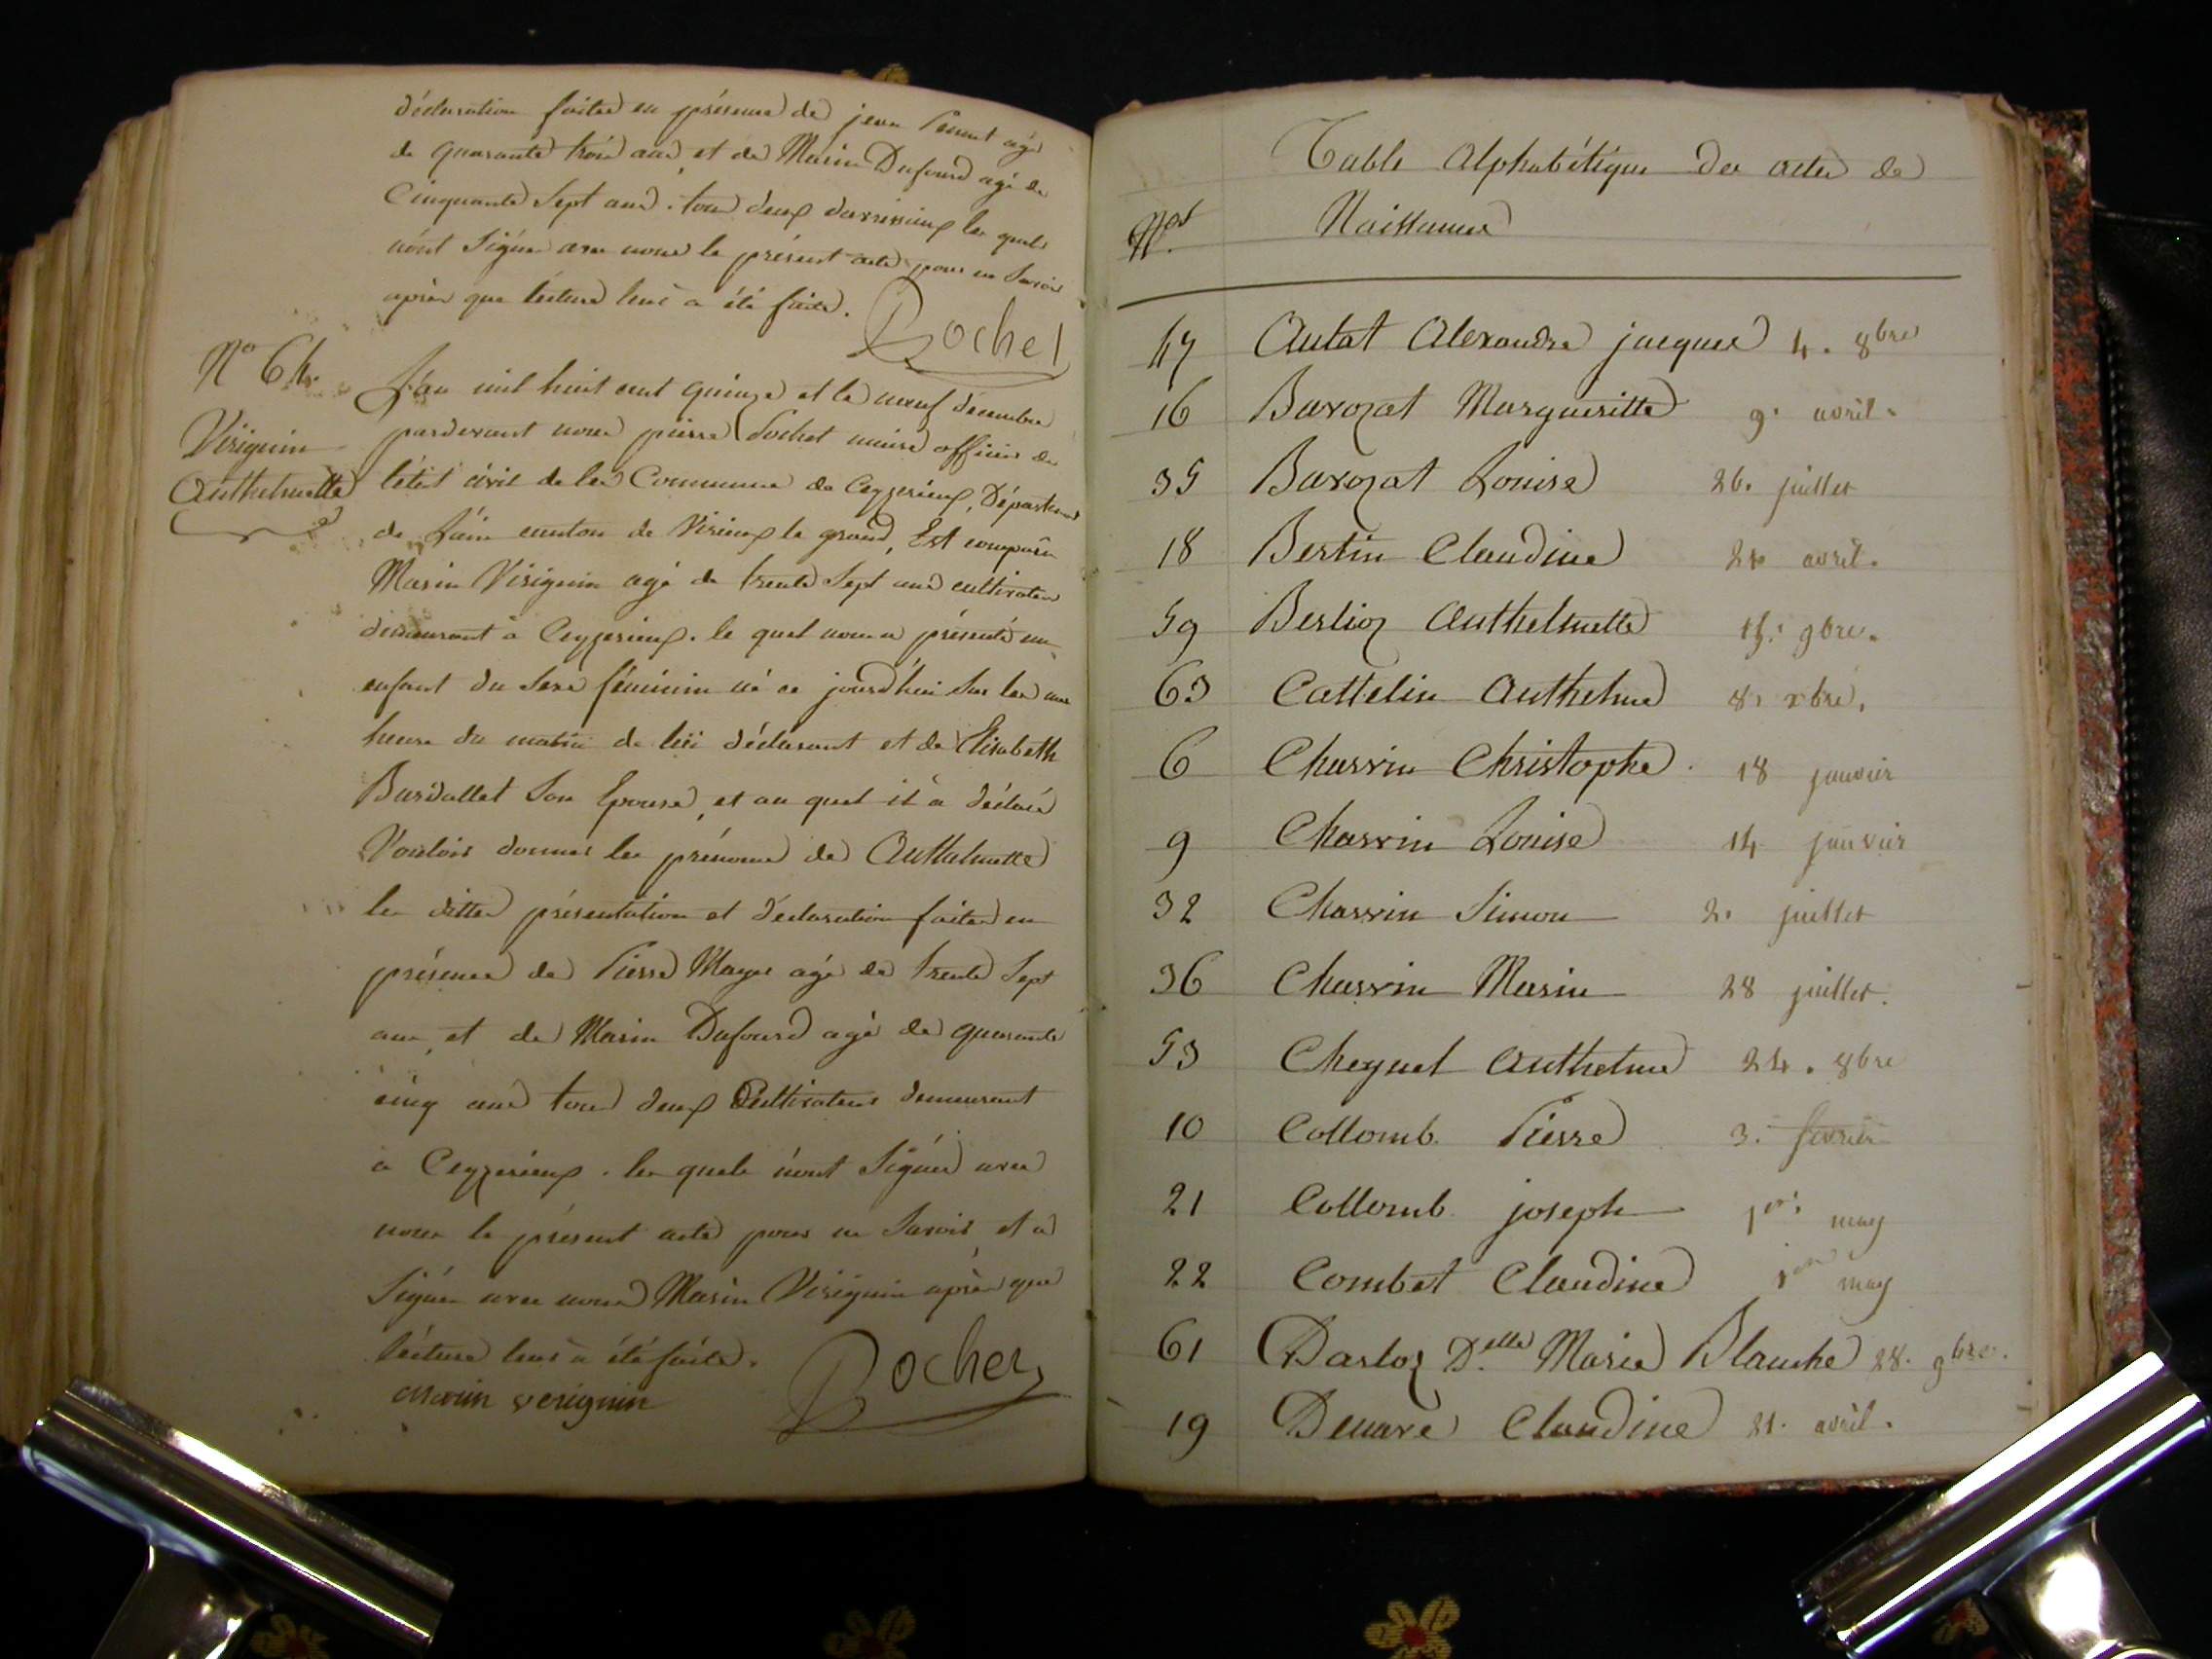 déclaration faitte en présence de jean Penet agé
de quarante trois ans, et de Marin Dufourd agé de
Cinquante Sept ans. tous deux les quels
n'ont Signés avec nous le présent acte pour ne Savoir
après que lécture leur à été faite.
Rochet
N° 64.
Viriguin
Anthelmette
L'an mil huit cent quinze et le neuf décembre
pardevant nous pierre Rochet maire officier de
létât civil de la Commune de Ceyzerieux, Département
de L'ain canton de Virieux le grand, Est comparu
Marin Viriguin agé de trente Sept ans cultivateur
demeurant à Ceyzerieux. le quel nous a présenté un
enfant du Sexe féminin né ce jourd'hui Sur les une
heure du matin de lüi déclarant et de Elisabeth
Burdallet Son Epouse, et au quel il à déclaré
Vouloir donner les prénoms de Anthelmette
les dittes présentation et déclaration faites en
présence de Pierre Mayer agé de trente Sept
ans, et de Marin Dufourd agé de quarante
cinq ans tous deux Cultivateurs demeurant
à Ceyzerieux. les quels n'ont Signés avec
nous le présent acte pour ne Savoir et a
Signér avec nous Marin Viriguin après que
lécture leur à été faite.
marin veriguin
Rochet
Table Alphabétique des actes de
Nos Naissances
47 Autat Alexandre jacques 4. 8bre
16 Barozat Margueritte 9. avril.
35 Barozat Louise 26. juillet
18 Bertin Claudine avril.
59 Berlioz Anthelmette 15. 9bre.
63 Cattelin Anthelme 8. xbre.
6 Charvin Christophe 18 janvier
9 Charvin Louise 14 janvier
32 Charvin Simon 2. juillet
36 Charvin Marin 28 juillet.
53 Cheynel Anthelme 24. 8bre
10 Collomb Pierre 3. fevrier
21 Collomb joseph 1er. may
22 Combet Claudine 1er may
61 Darloz D.elle Marie Blanche 28. 9bre.
19 Demare Claudine 21. avril.